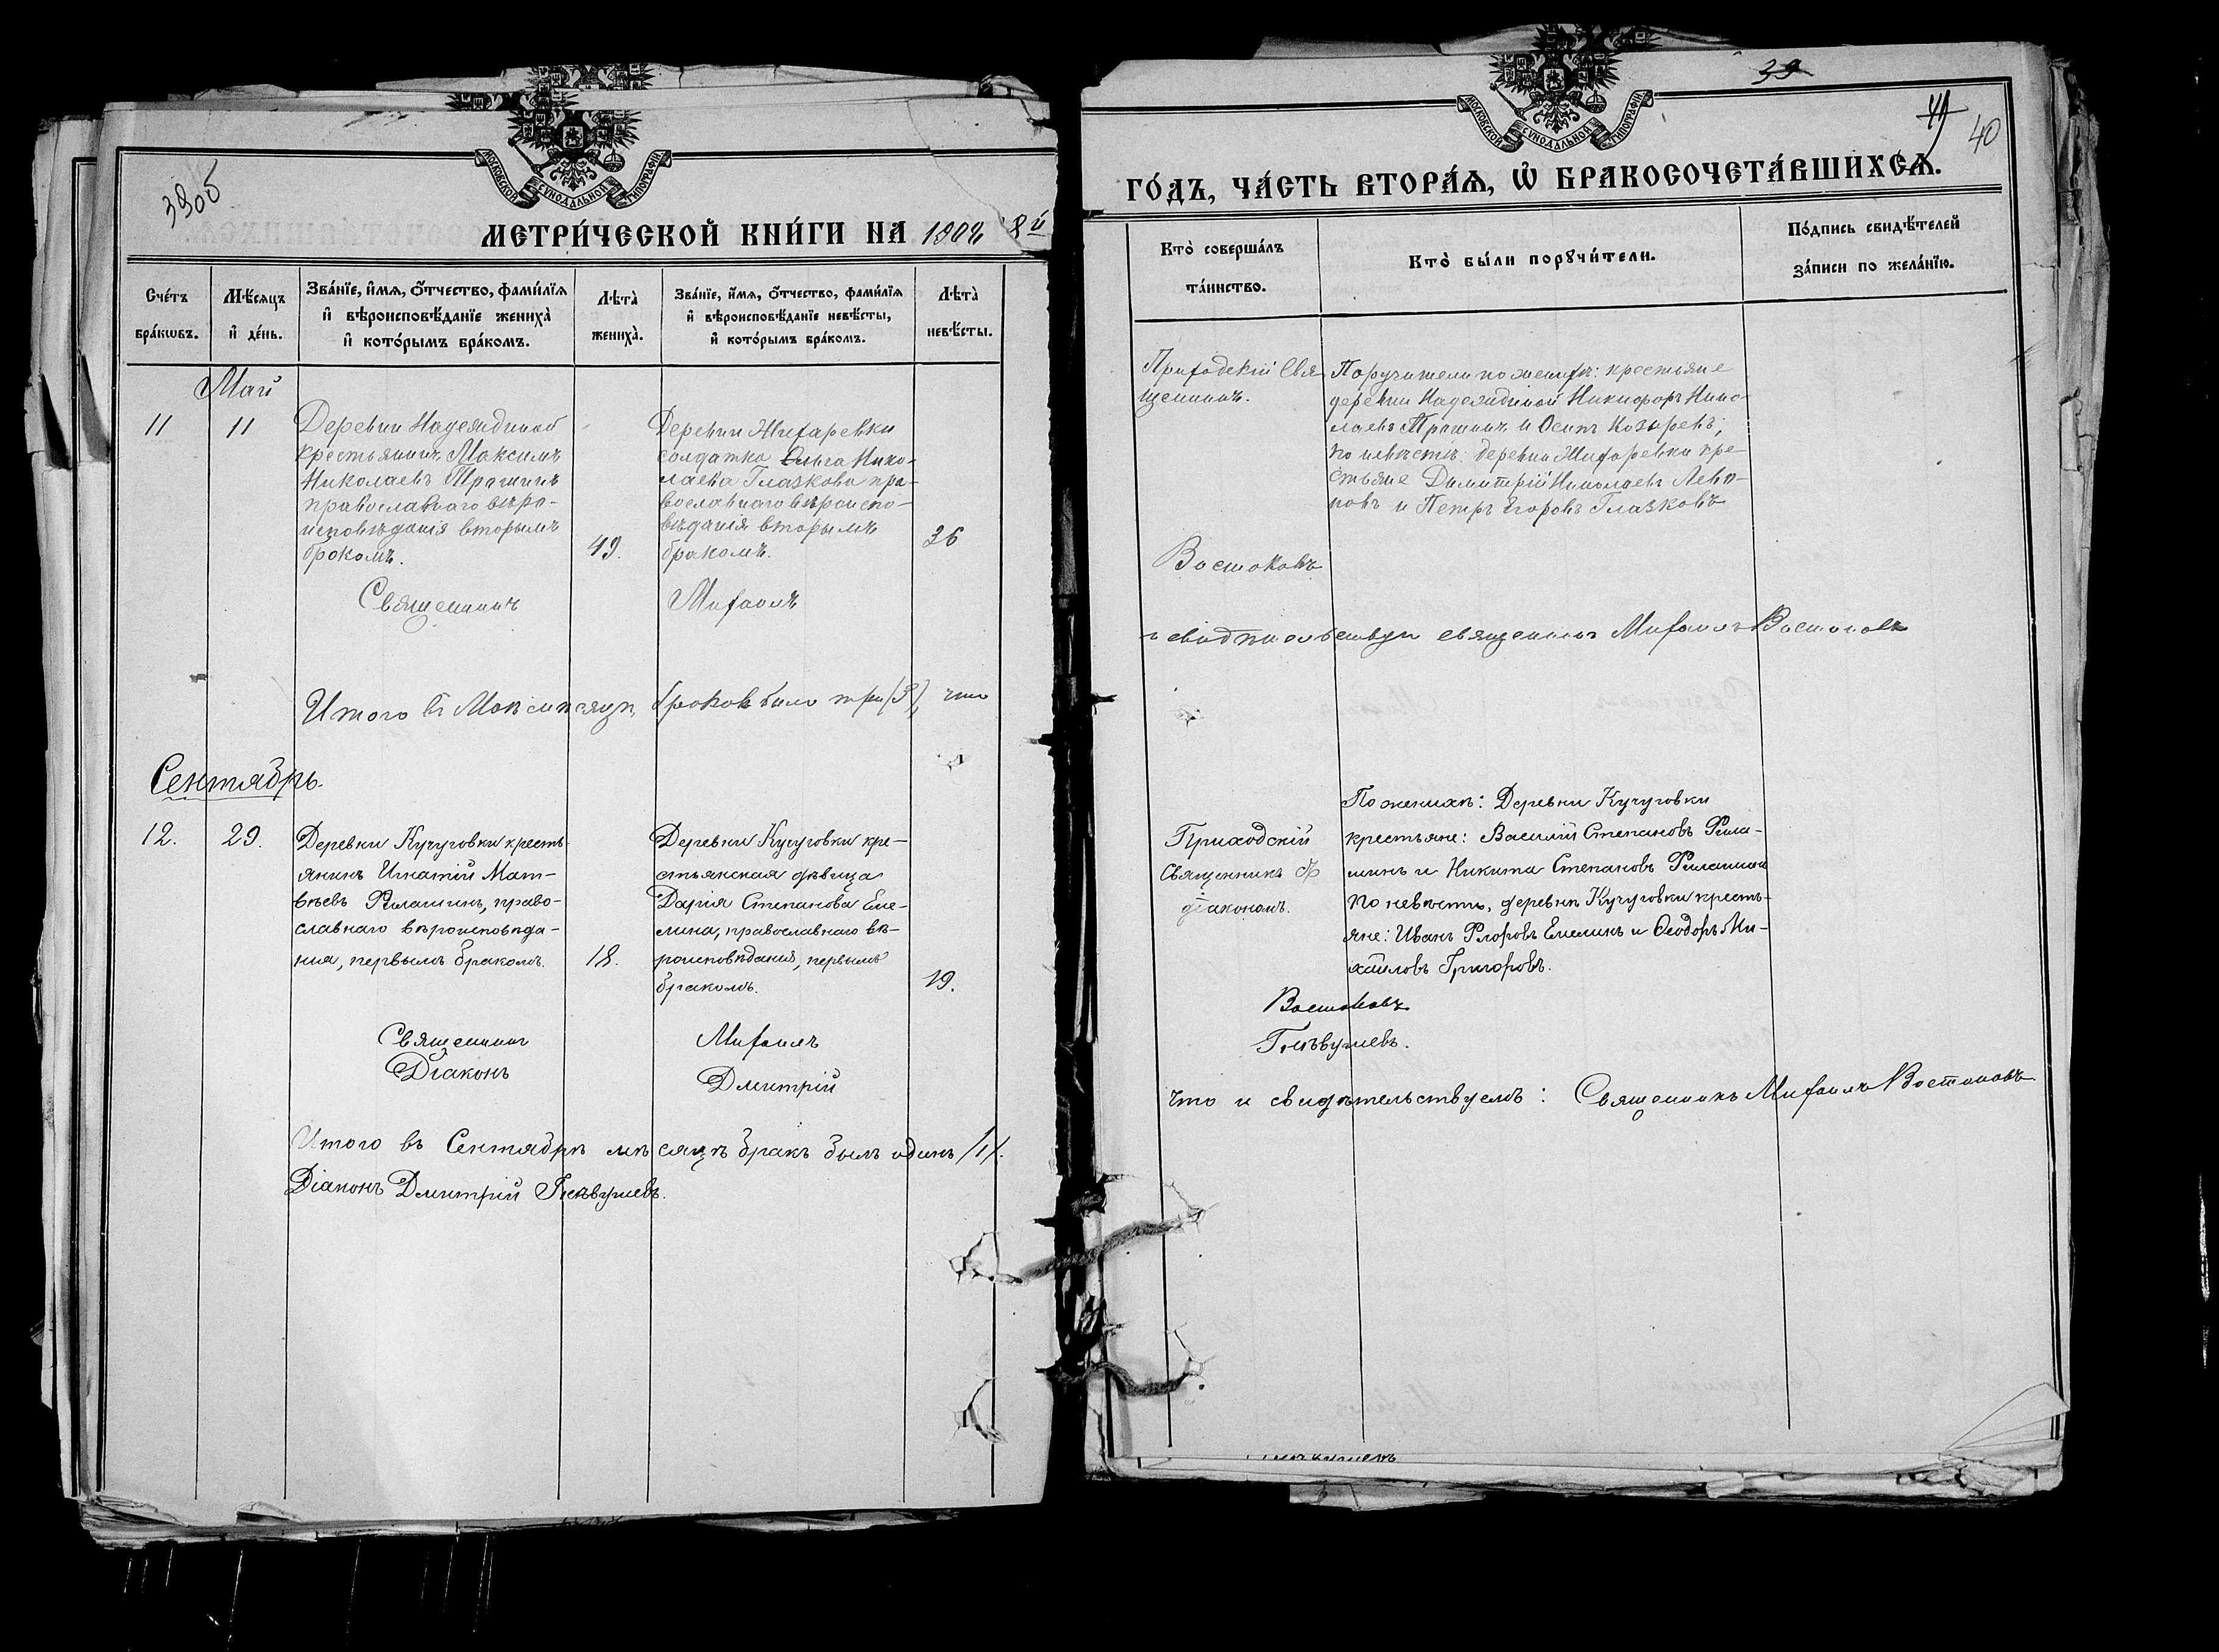 3905
МОСКОВСКОЙ СѴНОДАЛЬНОЙ ТИПОГРАФІИ.
МЕТРИ́ЧЕСКОЙ КНИ́ГИ НА 1908й
Сче́тъ бра́кωвъ.
Мѣ́сяцъ и҆ де́нь.
Зва́нїе, и҆́мя, ѻ҆́тчество, фами́лїя
и҆ вѣроисповѣ́данїе жениха̀
и҆ кото́рымъ бра́комъ.
Лѣта̀ жениха̀.
Зва́нїе, и҆́мя, ѻ҆́тчество, фами́лїя
и҆ вѣроисповѣ́данїе невѣ́сты,
и҆ кото́рымъ бра́комъ.
Лѣта̀ невѣ́сты.
Май
11
11
Деревни Надеждиной
крестьянинъ Максимъ
Николаевъ Трашинъ
православнаго вѣро-
исповѣданія вторымъ
бракомъ.
49.
Деревни Жихаревки
солдатка Ольга Нико-
лаева Глазкова пра-
вославнаго вѣроиспо-
вѣданія вторымъ
бракомъ.
36
Священникъ Михаилъ
Итого въ Маѣ мѣсяцѣ браковъ было три (3), что
Сентябрь.
12.
29.
Деревни Кучуговки кресть-
янинъ Игнатій Мат-
вѣевъ Филашинъ, право-
славнаго вѣроисповѣда-
нія, первымъ бракомъ.
18.
Деревни Кучуговки кре-
стьянская дѣвица
Дарія Степанова Еме-
лина, православнаго вѣ-
роисповѣданія, первымъ
бракомъ.
19.
Священникъ Михаилъ
Діаконъ Дмитрій
Итого въ Сентябрѣ мѣсяцѣ бракъ былъ одинъ /1/.
Діаконъ Дмитрій
39
40
МОСКОВСКОЙ СѴНОДАЛЬНОЙ ТИПОГРАФІИ.
ГО́ДЪ, ЧА́СТЬ ВТОРА́Ѧ, Ѡ҆ БРАКОСОЧЕТА́ВШИХСѦ.
Кто̀ соверша́лъ
та́инство.
Кто̀ бы́ли порꙋчи́тели.
По́дпись свидѣ́телей
за́писи по жела́нїю.
Приходскій Свя-
щенникъ.
Поручители по женихѣ: крестьяне
деревни Надеждиной Никифоръ Нико-
лаевъ Трашинъ и Осипъ Козыревъ;
по невѣстѣ: деревни Жихаревки кре-
стьяне Димитрій Николаевъ
и Петръ Егоровъ Глазковъ
Востоковъ
и свидѣтельствую священникъ Михаилъ Востоковъ
Приходскій
Священникъ съ
діакономъ.
По женихѣ: Деревни Кучуговки
крестьяне: Василій Степановъ Фила-
шинъ и Никита Степановъ Филашинъ
по невѣстѣ, деревни Кучуговки кресть-
яне: Иванъ Флоровъ Емелинъ и Ѳеодоръ Ми-
хайловъ Григоровъ.
Востоковъ
Что и свидѣтельствуемъ: Священникъ Михаилъ Востоковъ